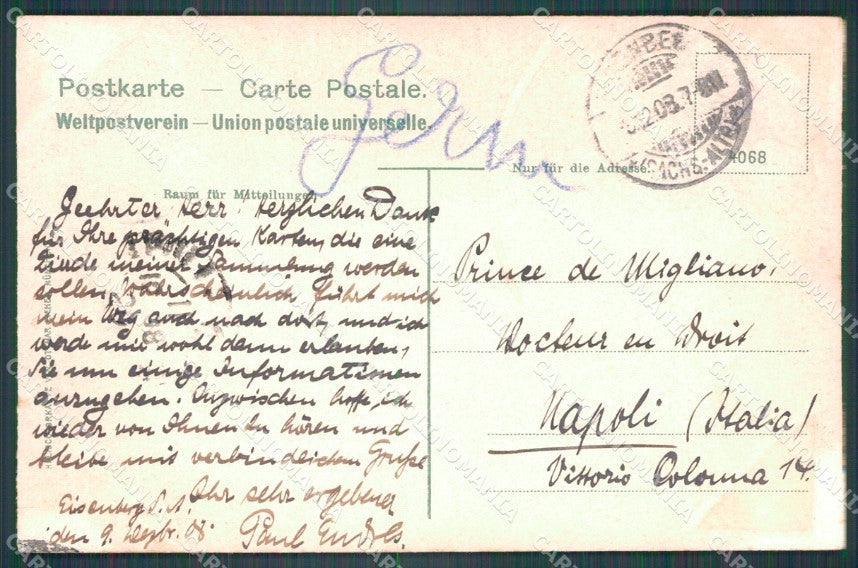 Postkarte — Carte Postale.
Weltpostverein — Union postale universelle.
Nur für die Adresse.
4068
Raum für Mitteilungen
Geehrter Herr! Herzlichen Dank
für Ihre prächtigen Karten, die eine
Zierde meiner Sammlung werden
sollen. Wahrscheinlich führt mich
mein Weg auch nach dort, und ich
werde mir wohl dann erlauben,
Sie um einige Informationen
anzugehen. Inzwischen hoffe ich
wieder von Ihnen zu hören und
bleibe mit verbindlichem Gruße
Ihr sehr ergebener
Eisenberg S. A.
den 9. Dezbr. 08.
Paul
Prince de Migliano.
Docteur en Droit
Napoli (Italia)
Vittorio Colonna 14.
CARTOLINOMANIA